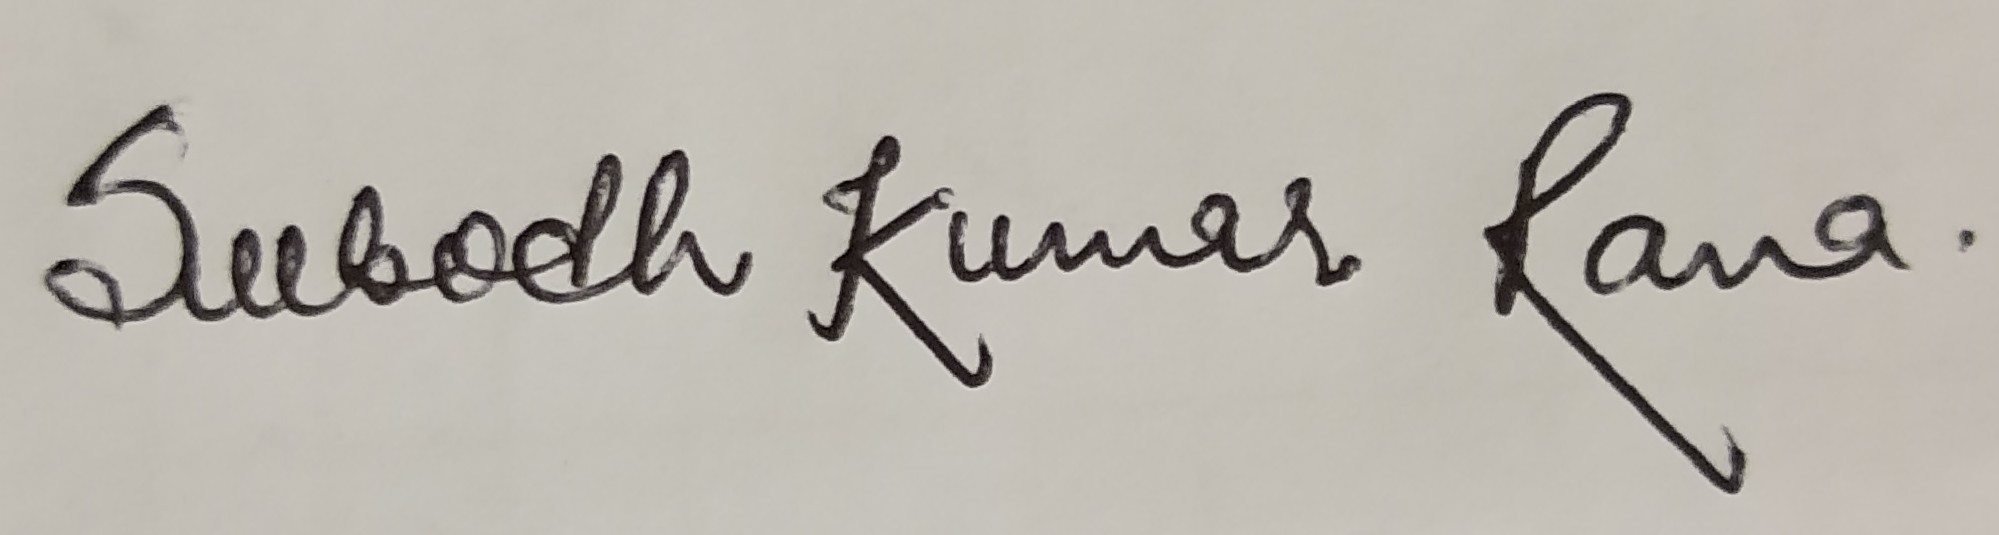 Subodh Kumar Rana.